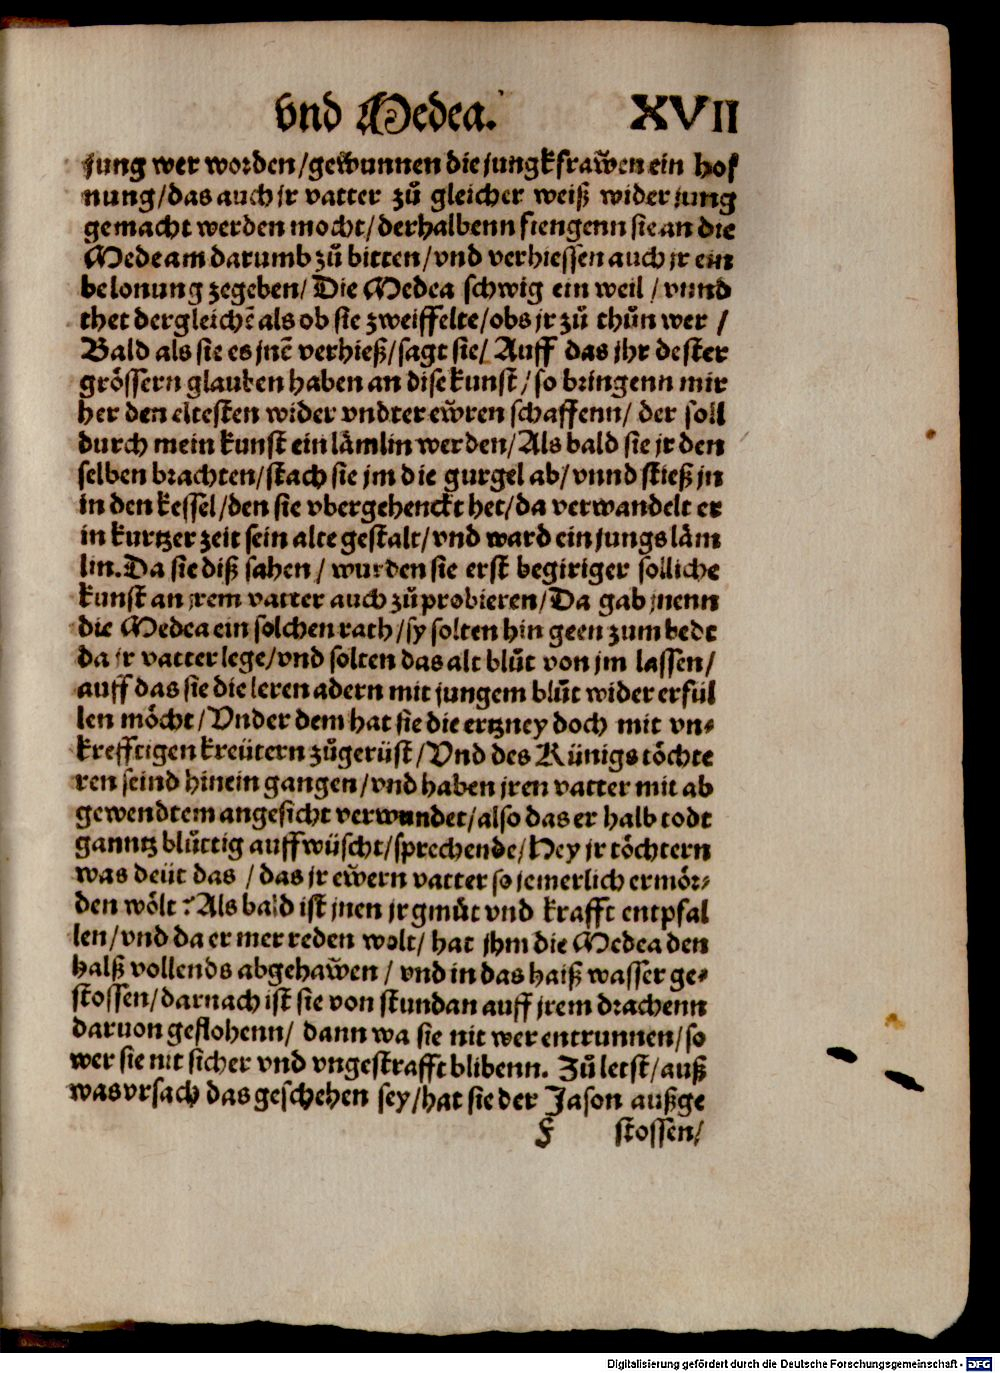 vnd Medea. XVII
jung wer worden/gewunnen die jungkfrawen ein hof
nung/das auch jr vatter zů gleicher weiß wider jung
gemacht werden mocht/derhalbenn fiengenn sie an die
Medeam darumb zů bitten/vnd verhiessen auch jr ein
belonung zegeben/Die Medea schwig ein weil/vnnd
thet dergleichē als ob sie zweiffelte/obs jr zů thůn wer/
Bald als sie es jnē verhieß/sagt sie/Auff das jhr dester
grössern glauben haben an dise kunst/so bringenn mir
her den eltesten wider vndter ewren schaffenn/der soll
durch mein kunst ein lämlin werden/Als bald sie jr den
selben brachten/stach sie jm die gurgel ab/vnnd stieß jn
in den kessel/den sie vbergehenckt het/da verwandelt er
in kurtzer zeit sein alte gestalt/vnd ward ein jungs läm
lin. Da sie diß sahen/wurden sie erst begiriger solliche
kunst an jrem vatter auch zů probieren/Da gab jnenn
die Medea ein solchen rath/sy solten hin geen zum bedt
da jr vatter lege/vnd solten das alt blůt von jm lassen/
auff das sie die leren adern mit jungem blůt wider erfül
len möcht/Vnder dem hat sie die ertzney doch mit vn⸗
krefftigen kreütern zůgerüst/Vnd des Künigs töchte
ren seind hinein gangen/vnd haben jren vatter mit ab
gewendtem angesicht verwundet/also das er halb todt
ganntz blůttig auffwüscht/sprechende/Hey jr töchtern
was deüt das/das jr ewern vatter so jemerlich ermör⸗
den wölt? Als bald ist jnen jr gmůt vnd krafft entpfal
len/vnd da er mer reden wolt/hat jhm die Medea den
halß vollends abgehawen/vnd in das haiß wasser ge⸗
stossen/darnach ist sie von stundan auff jrem drachenn
daruon geflohenn/dann wa sie nit wer entrunnen/so
wer sie nit sicher vnd vngestrafft blibenn. Zů letst/auß
was vrsach das geschehen sey/hat sie der Jason außge
F stossen/
Digitalisierung gefördert durch die Deutsche Forschungsgemeinschaft - DFG